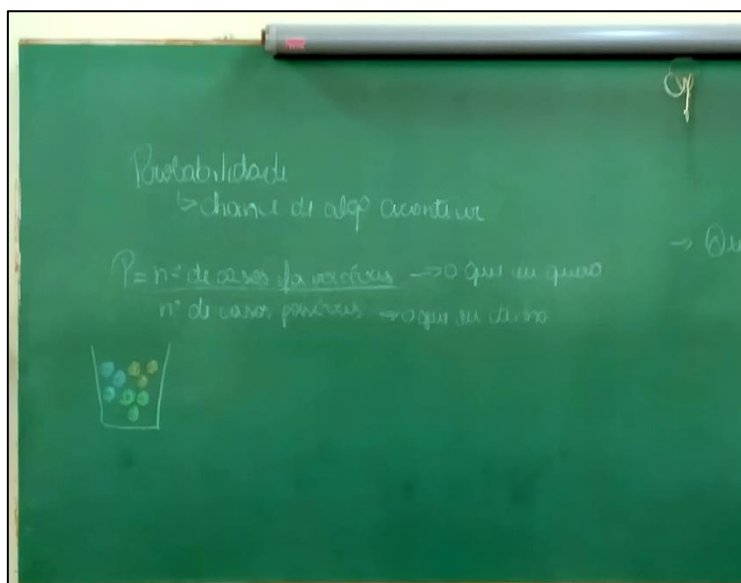 Probabilidade
↳ chance de algo acontecer
P = nº de casos favoráveis → o que eu quero
nº de casos possíveis → o que eu tenho
→ Qu